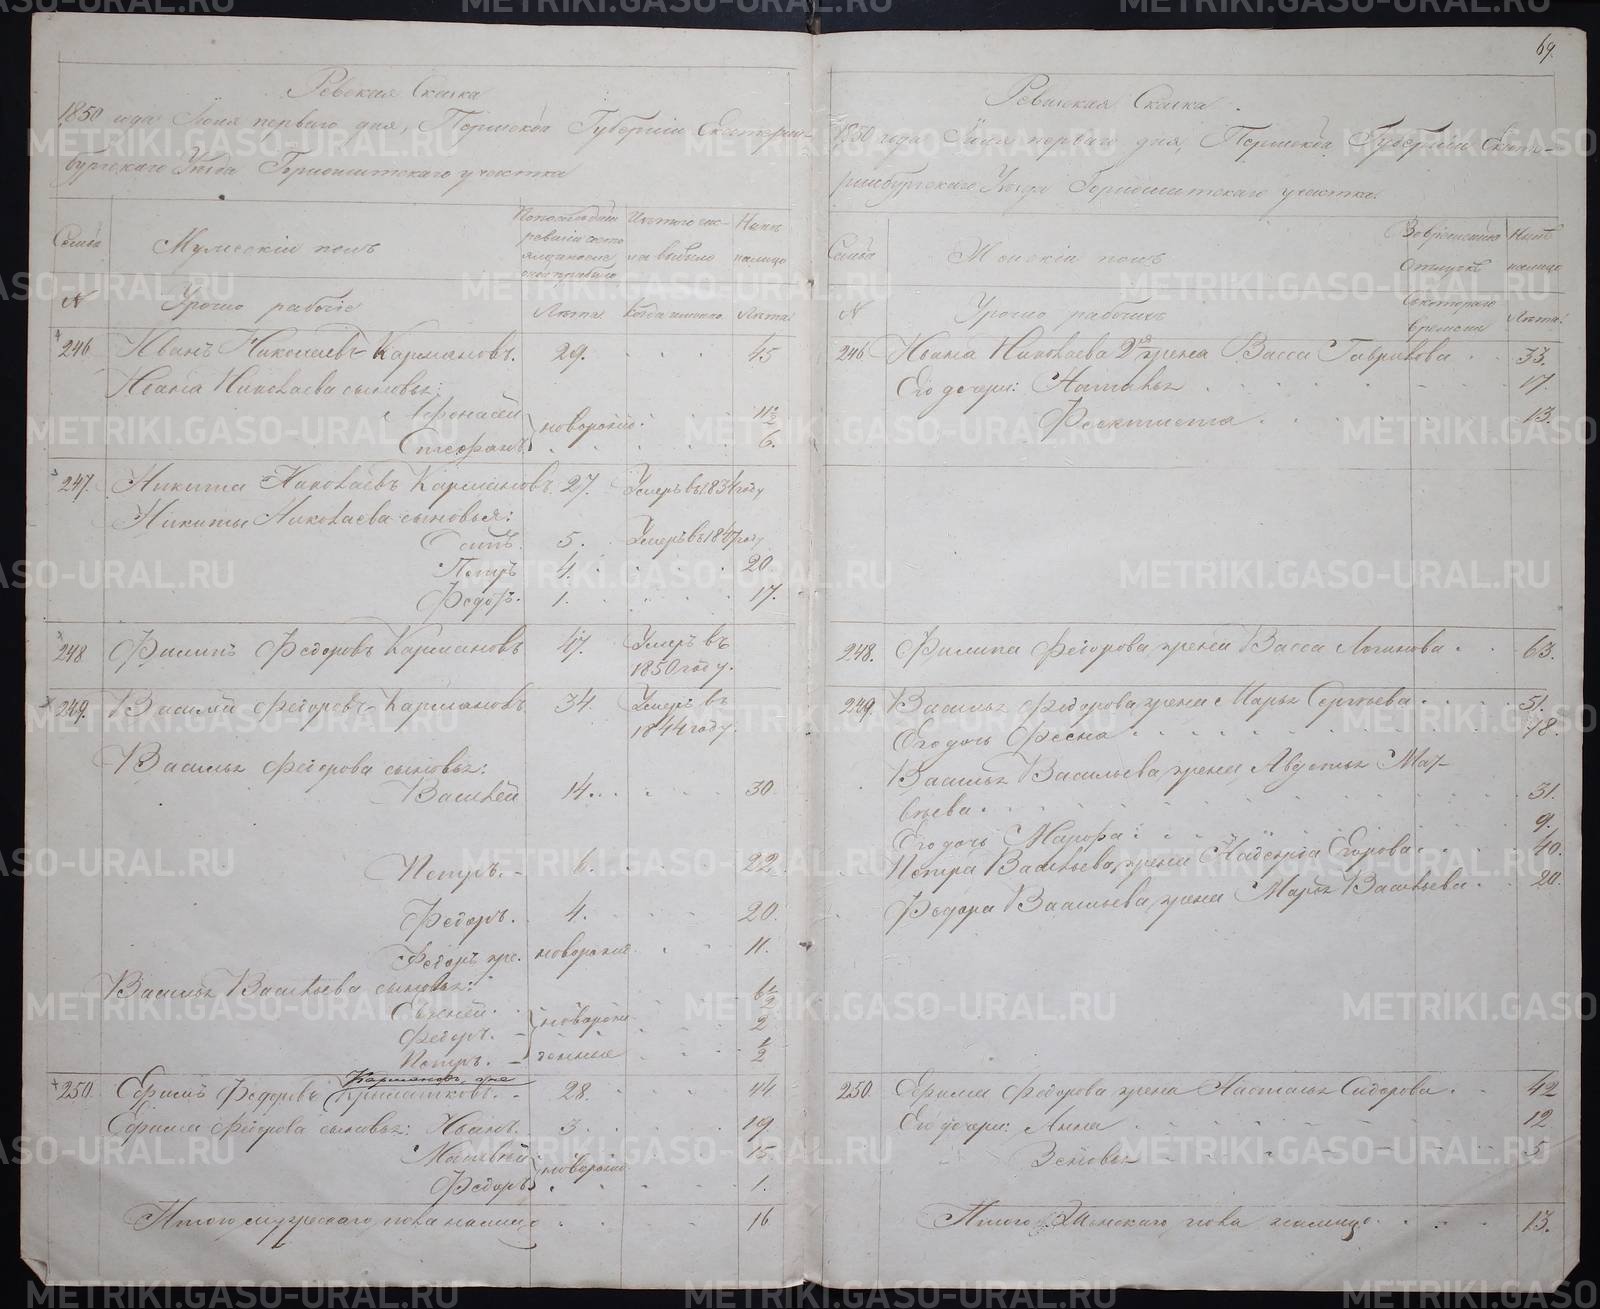 69.
Ревская Сказка
1850 года Июня перваго дня, Пермской Губернiи Екатерин-
бургскаго Уезда Горнощитскаго участка
Семья
Мужескiй полъ
По последней ревизiи состояло
Изъ того числа выбыло
Ныне налицо
N
Урочно рабочiе
Лѣта
Когда именно
Лѣта
246 Иванъ Николаевъ Кармановъ. 29. 45
Ивана Николаева сыновья:
Афонасей новорожд. 11½
Стефанъ 6.
247. Никита Николаевъ Кармановъ. 27. Умеръ въ 1834 году
Никиты Николаева сыновья:
Осипъ. 5. Умеръ въ 1847 году
Петръ 4. 20.
Федоръ. 1. 17.
248 Филипъ Федоровъ Кармановъ 47. Умеръ въ
1850 году.
249. Василiй Федоровъ Кармановъ 34. Умеръ въ
1844 году.
Василья Федорова сыновья:
Василей 14. 30
Петръ. 6. 22
Федоръ. 4. 20
Федоръ же. новорожде 11.
Василья Васильева сыновья:
Евгеней. 6½
Федоръ. новорож 2
Петръ. денные ½
Кармановъ же
250. Ефимъ Федоровъ 28. 44
Ефима Федорова сыновья: Иванъ. 3. 19
Матвей новорожд 15.
Федоръ 1.
Итого мужескаго пола налицо 16
Ревизская Сказка.
1850 года Июня перваго дня, Пермской Губернiи Екате-
ринбургскаго Уезда Горнощитскаго участка.
Семья
Женскiй полъ
Во временной отлучкѣ
Ныне налицо
N
Урочно рабочихъ
Съ котораго времени
Лѣта.
246 Ивана Николаева 2я жена Васса Гаврилова 33.
Его дочери: Наталья 17.
Феоктиста 13.
248. Филипа Федорова жена Васса Логинова. 63.
249. Василья Федорова жена Марья Сергеева 51.
Его дочь Фесна 18.
Василья Васильева жена Августа Мат-
веева. 31.
Его дочь Марфа: 9.
Петра Васильева жена Надежда Егорова. 40.
Федора Васильева жена Марья Васильева. 20.
250. Ефима Федорова жена Настасья Сидорова. 42
Его дочери: Анна 12
Зеновья 5
Итого Женскаго пола налицо. 13.